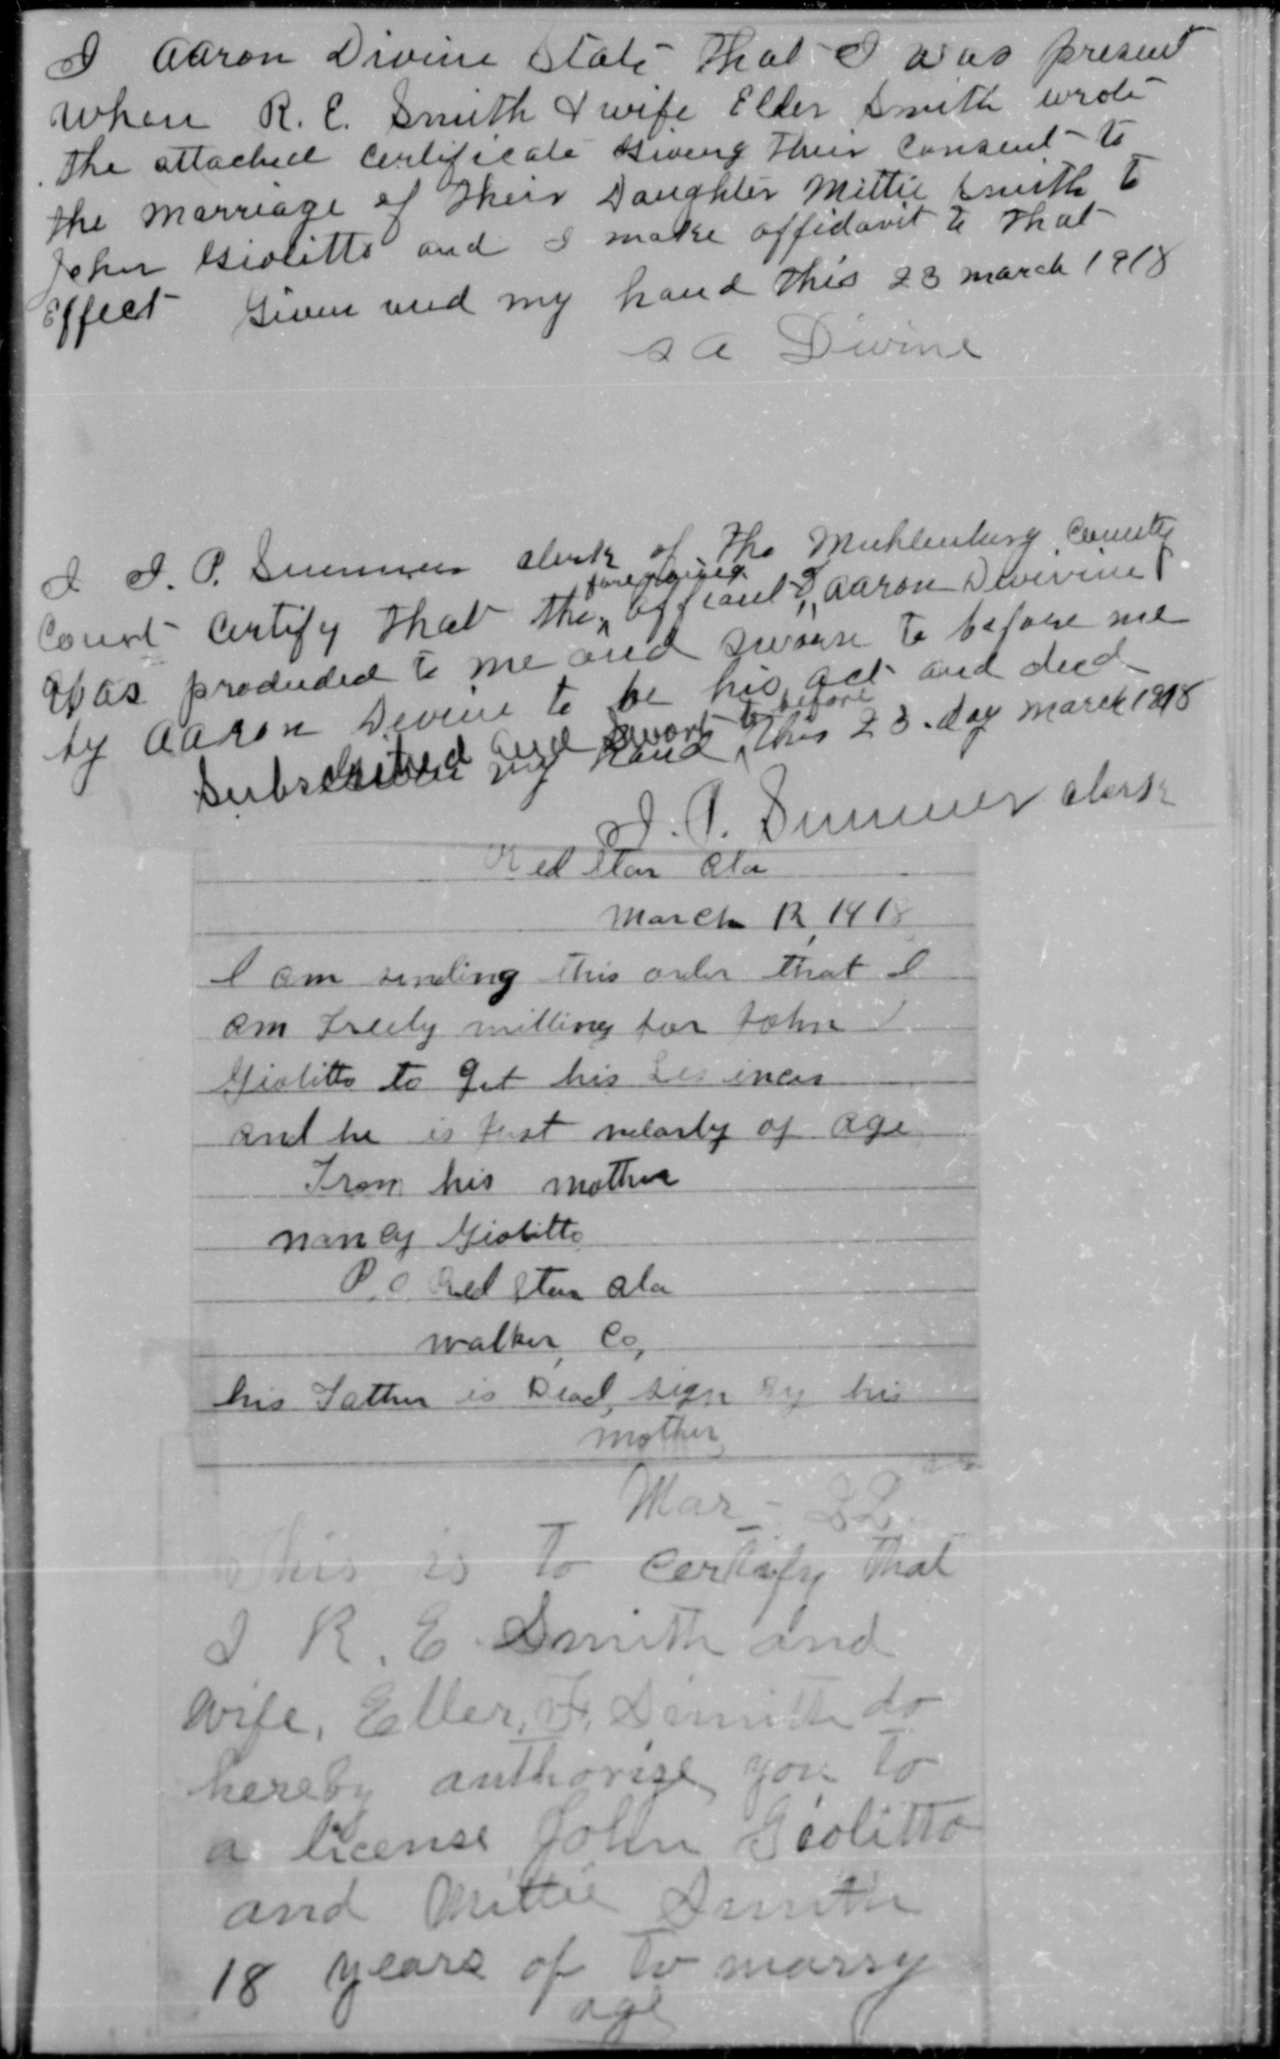 I Aaron Divine State that I was present
when R. E. Smith & wife Eller Smith wrote
the attached certificate Giving their Consent to
the marriage of their Daughter Mittie Smith to
John Giolitto and I make affidavit to that
Effect Given und my hand this 23 march 1918
S A Divine
I J. P. Summer clerk of the Muhlenburg County
Court Certify that the foregoing affiant Aaron
was produded to me and sworn to before me
by Aaron Devine to be his act and deed
Subscribed and Sworn to before my hand this 23. day march 1918
J. P. Summer clerk
Red Star Ala
March 12, 1918
I am sending this order that I
am Freely willing for John
Giolitto to get his
and he is Just nearly of age
From his mother
nancy Giolitto
P. O. Red Star Ala
walker, Co,
his Father is Dead, sign By his
mother
Mar - 22
This is to certify that
I R. E. Smith and
wife, Eller, F. Smith do
hereby authorize you to
a license John Giolitto
and Mittie Smith
18 years of to marry
age